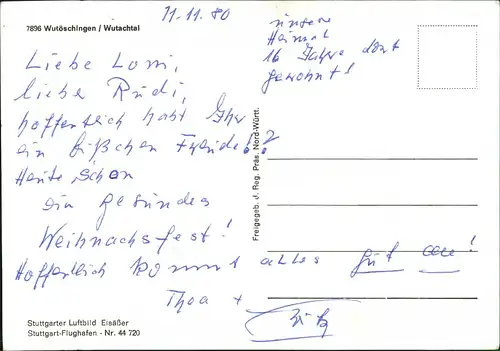 11.11.80
7896 Wutöschingen / Wutachtal
unsere
Heimat
16 Jahre dort
gewohnt!
Liebe Loni,
liebe Rudi,
hoffentlich habt Ihr
ein bißchen Freude!?
Heute schon
ein gesundes
Weihnachsfest!
Hoffentlich kommt alles gut an!
Thea +
Fritz
Freigegeb. J. Reg. Präs. Nord-Württ.
Stuttgarter Luftbild Elsäßer
Stuttgart-Flughafen - Nr. 44 720